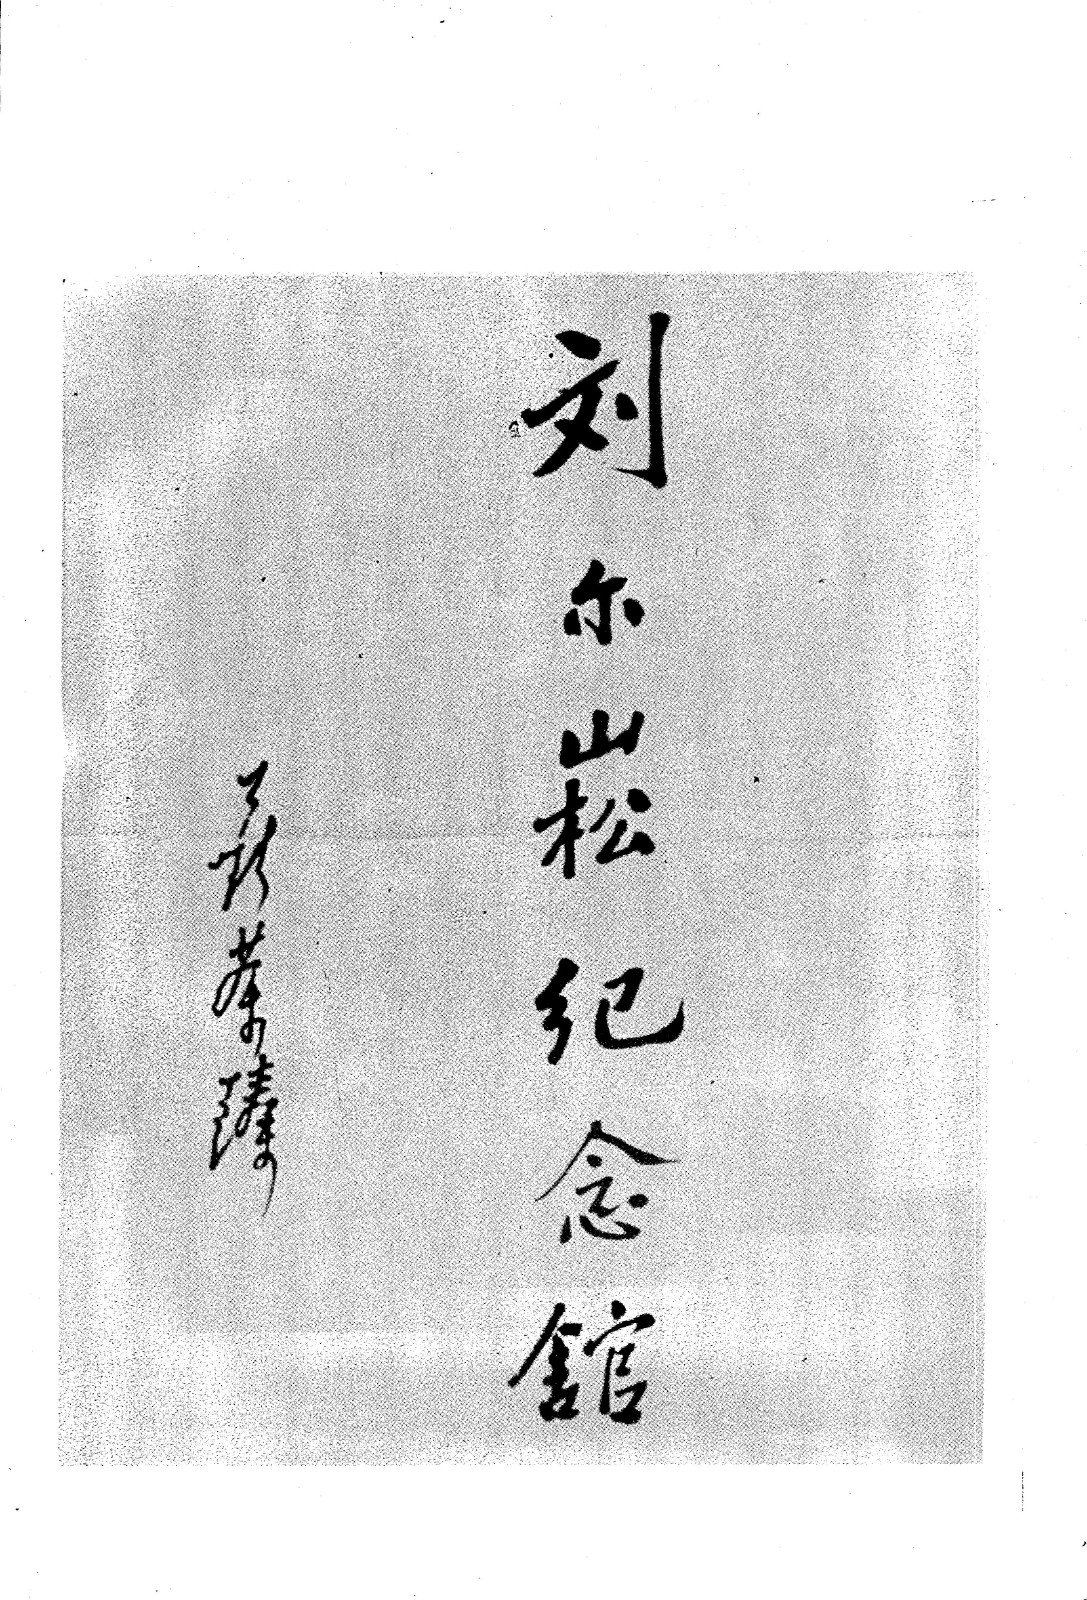 刘尔崧纪念舘
聂荣臻